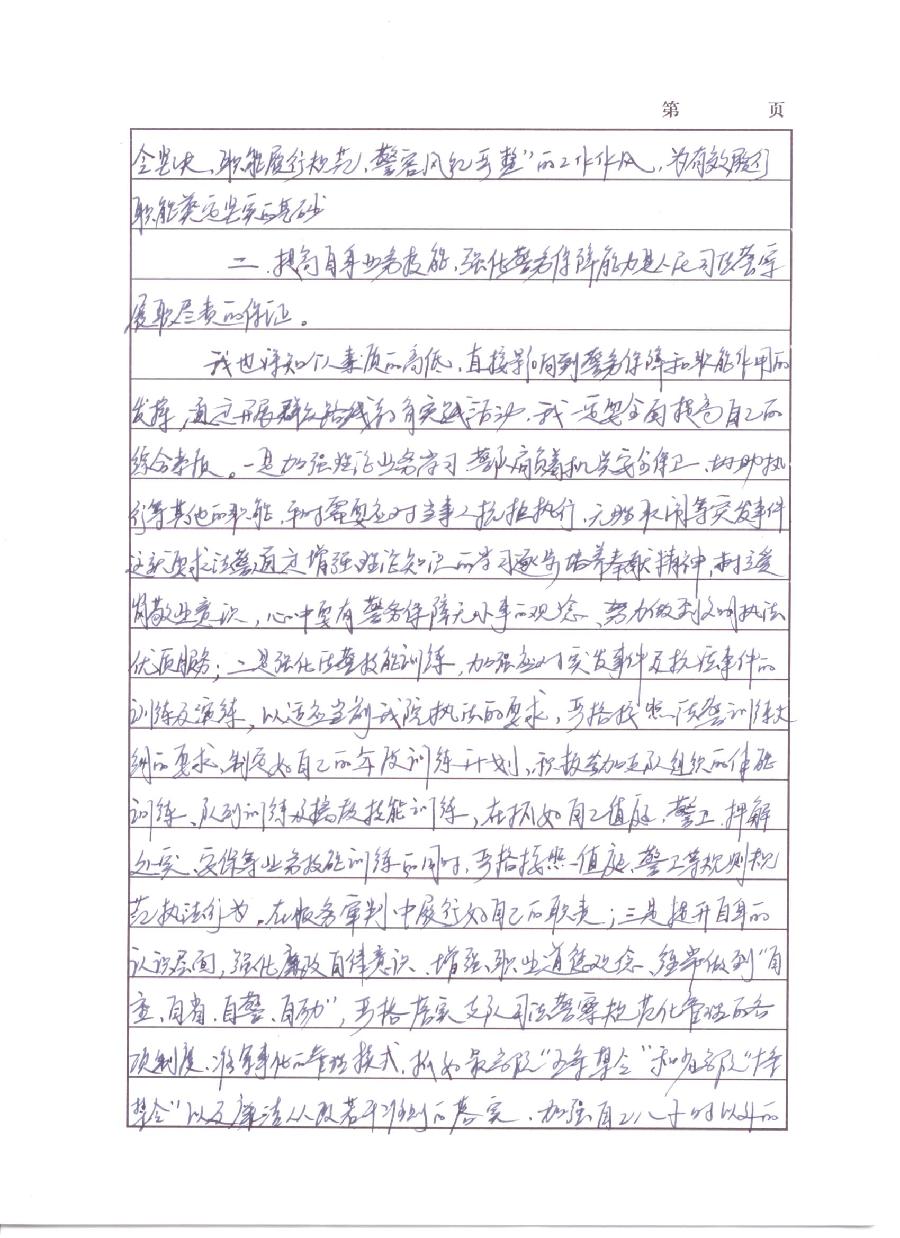 第 页
令坚决、职能履行规范、警容风纪严整”的工作作风，为有效履行
职能奠定坚实的基础
二、提高自身业务技能，强化警务保障能力是人民司法警察
履职尽责的保证。
我也深知个人素质的高低，直接影响到警务保障和职能作用的
发挥，通过开展群众路线教育实践活动，我一定要全面提高自己的
综合素质。一是加强理论业务学习 警队肩负着机关安全保卫、协助执
行等其他的职能，平时需要应对当事人抗拒执行、无理取闹等突发事件
这就要求法警通过增强理论知识的学习逐步培养奉献精神，树立爱
岗敬业意识，心中要有警务保障无小事的观念、努力做到文明执法
优质服务；二是强化法警技能训练，加强应对突发事件及抗法事件的
训练及演练，以适应当前我院执法的要求，严格按照法警训练大
纲的要求，制定好自己的年度训练计划，积极参加支队组织的体能
训练、队列训练及擒敌技能训练，在抓好自己值庭、警卫、押解
处突、安保等业务技能训练的同时，严格按照值庭、警卫等规则规
范执法行为。在服务审判中履行好自己的职责；三是提升自身的
认识层面，强化廉政自律意识、增强职业道德观念，经常做到“自
查、自省、自警、自励”，严格落实支队司法警察规范化管理的各
项制度、准军事化的管理模式，抓好最高院“五条禁令”和省高院“十条
禁令”以及廉洁从政若干准则的落实、加强自己八小时以外的